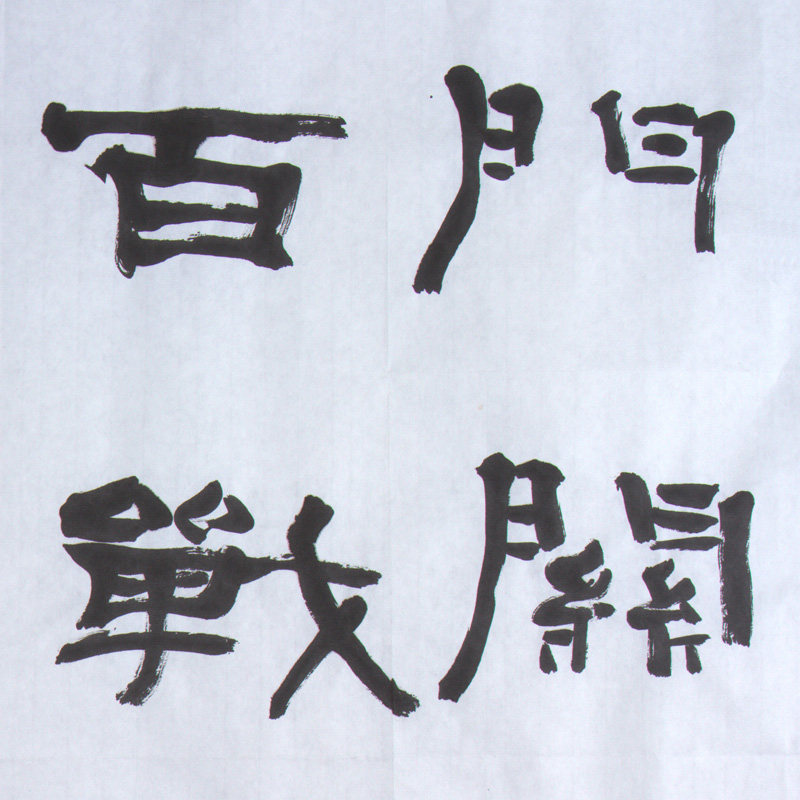 門關
百戰